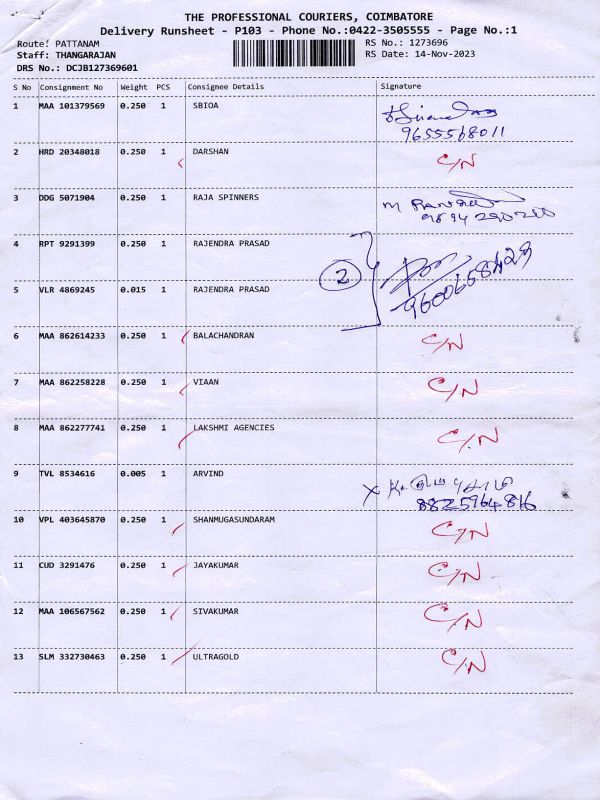 THE PROFESSIONAL COURIERS, COIMBATORE
Delivery Runsheet - P103 - Phone No.:0422-3505555 - Page No.:1
Route: PATTANAM RS No.: 1273696
Staff: THANGARAJAN RS Date: 14-Nov-2023
DRS No.: DCJB127369601
S No Consignment No Weight PCS Consignee Details Signature
1 MAA 101379569 0.250 1 SBIOA
9655568011
2 HRD 20348018 0.250 1 DARSHAN C/N
3 DDG 5071904 0.250 1 RAJA SPINNERS M
9894290210
4 RPT 9291399 0.250 1 RAJENDRA PRASAD
2
9600658429
5 VLR 4869245 0.015 1 RAJENDRA PRASAD
6 MAA 862614233 0.250 1 BALACHANDRAN C/N
7 MAA 862258228 0.250 1 VIAAN C/N
8 MAA 862277741 0.250 1 LAKSHMI AGENCIES C/N
9 TVL 8534616 0.005 1 ARVIND X
8825964816
10 VPL 403645870 0.250 1 SHANMUGASUNDARAM C/N
11 CUD 3291476 0.250 1 JAYAKUMAR C/N
12 MAA 106567562 0.250 1 SIVAKUMAR C/N
13 SLM 332730463 0.250 1 ULTRAGOLD C/N